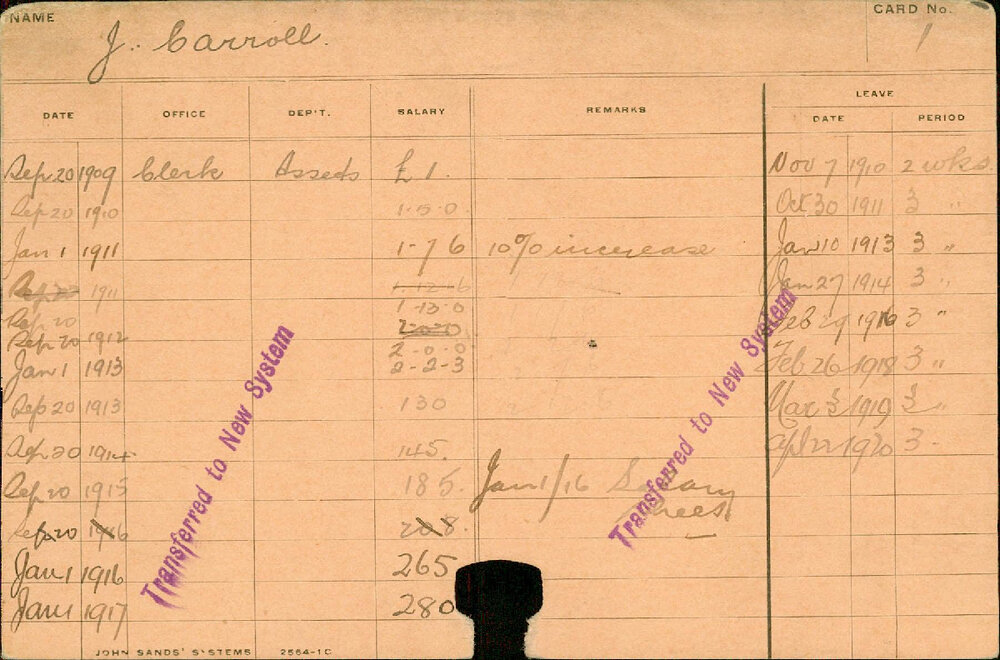 NAME
J. Carroll.
CARD No.
1
DATE OFFICE DEP'T. SALARY REMARKS LEAVE
DATE PERIOD
Sep 20 1909 Clerk Assets £1. Nov 7 1910 2 wks.
Sep 20 1910 1-5-0 Oct 30 1911 3 "
Jan 1 1911 1-7 6 10% increase Jan 10 1913 3 "
Sep 20 1911 1-12-6 Jan 27 1914 3 "
1-13-0
Sep 20
Sep 20 1912 2-0-0 Feb 29 1916 3 "
Jan 1 1913 2-2-3 Feb 26 1918 3 "
Sep 20 1913 130 Mar 3 1919 3 "
Sep 20 1914 145. Apl 22 1920 3.
Sep 20 1915 185. Jan 1/16 Salary
Sep 20 1916 208.
Jan 1 1916 265
Jan 1 1917 280
Transferred to New System
Transferred to New System
JOHN SANDS' SYSTEMS 2564-10